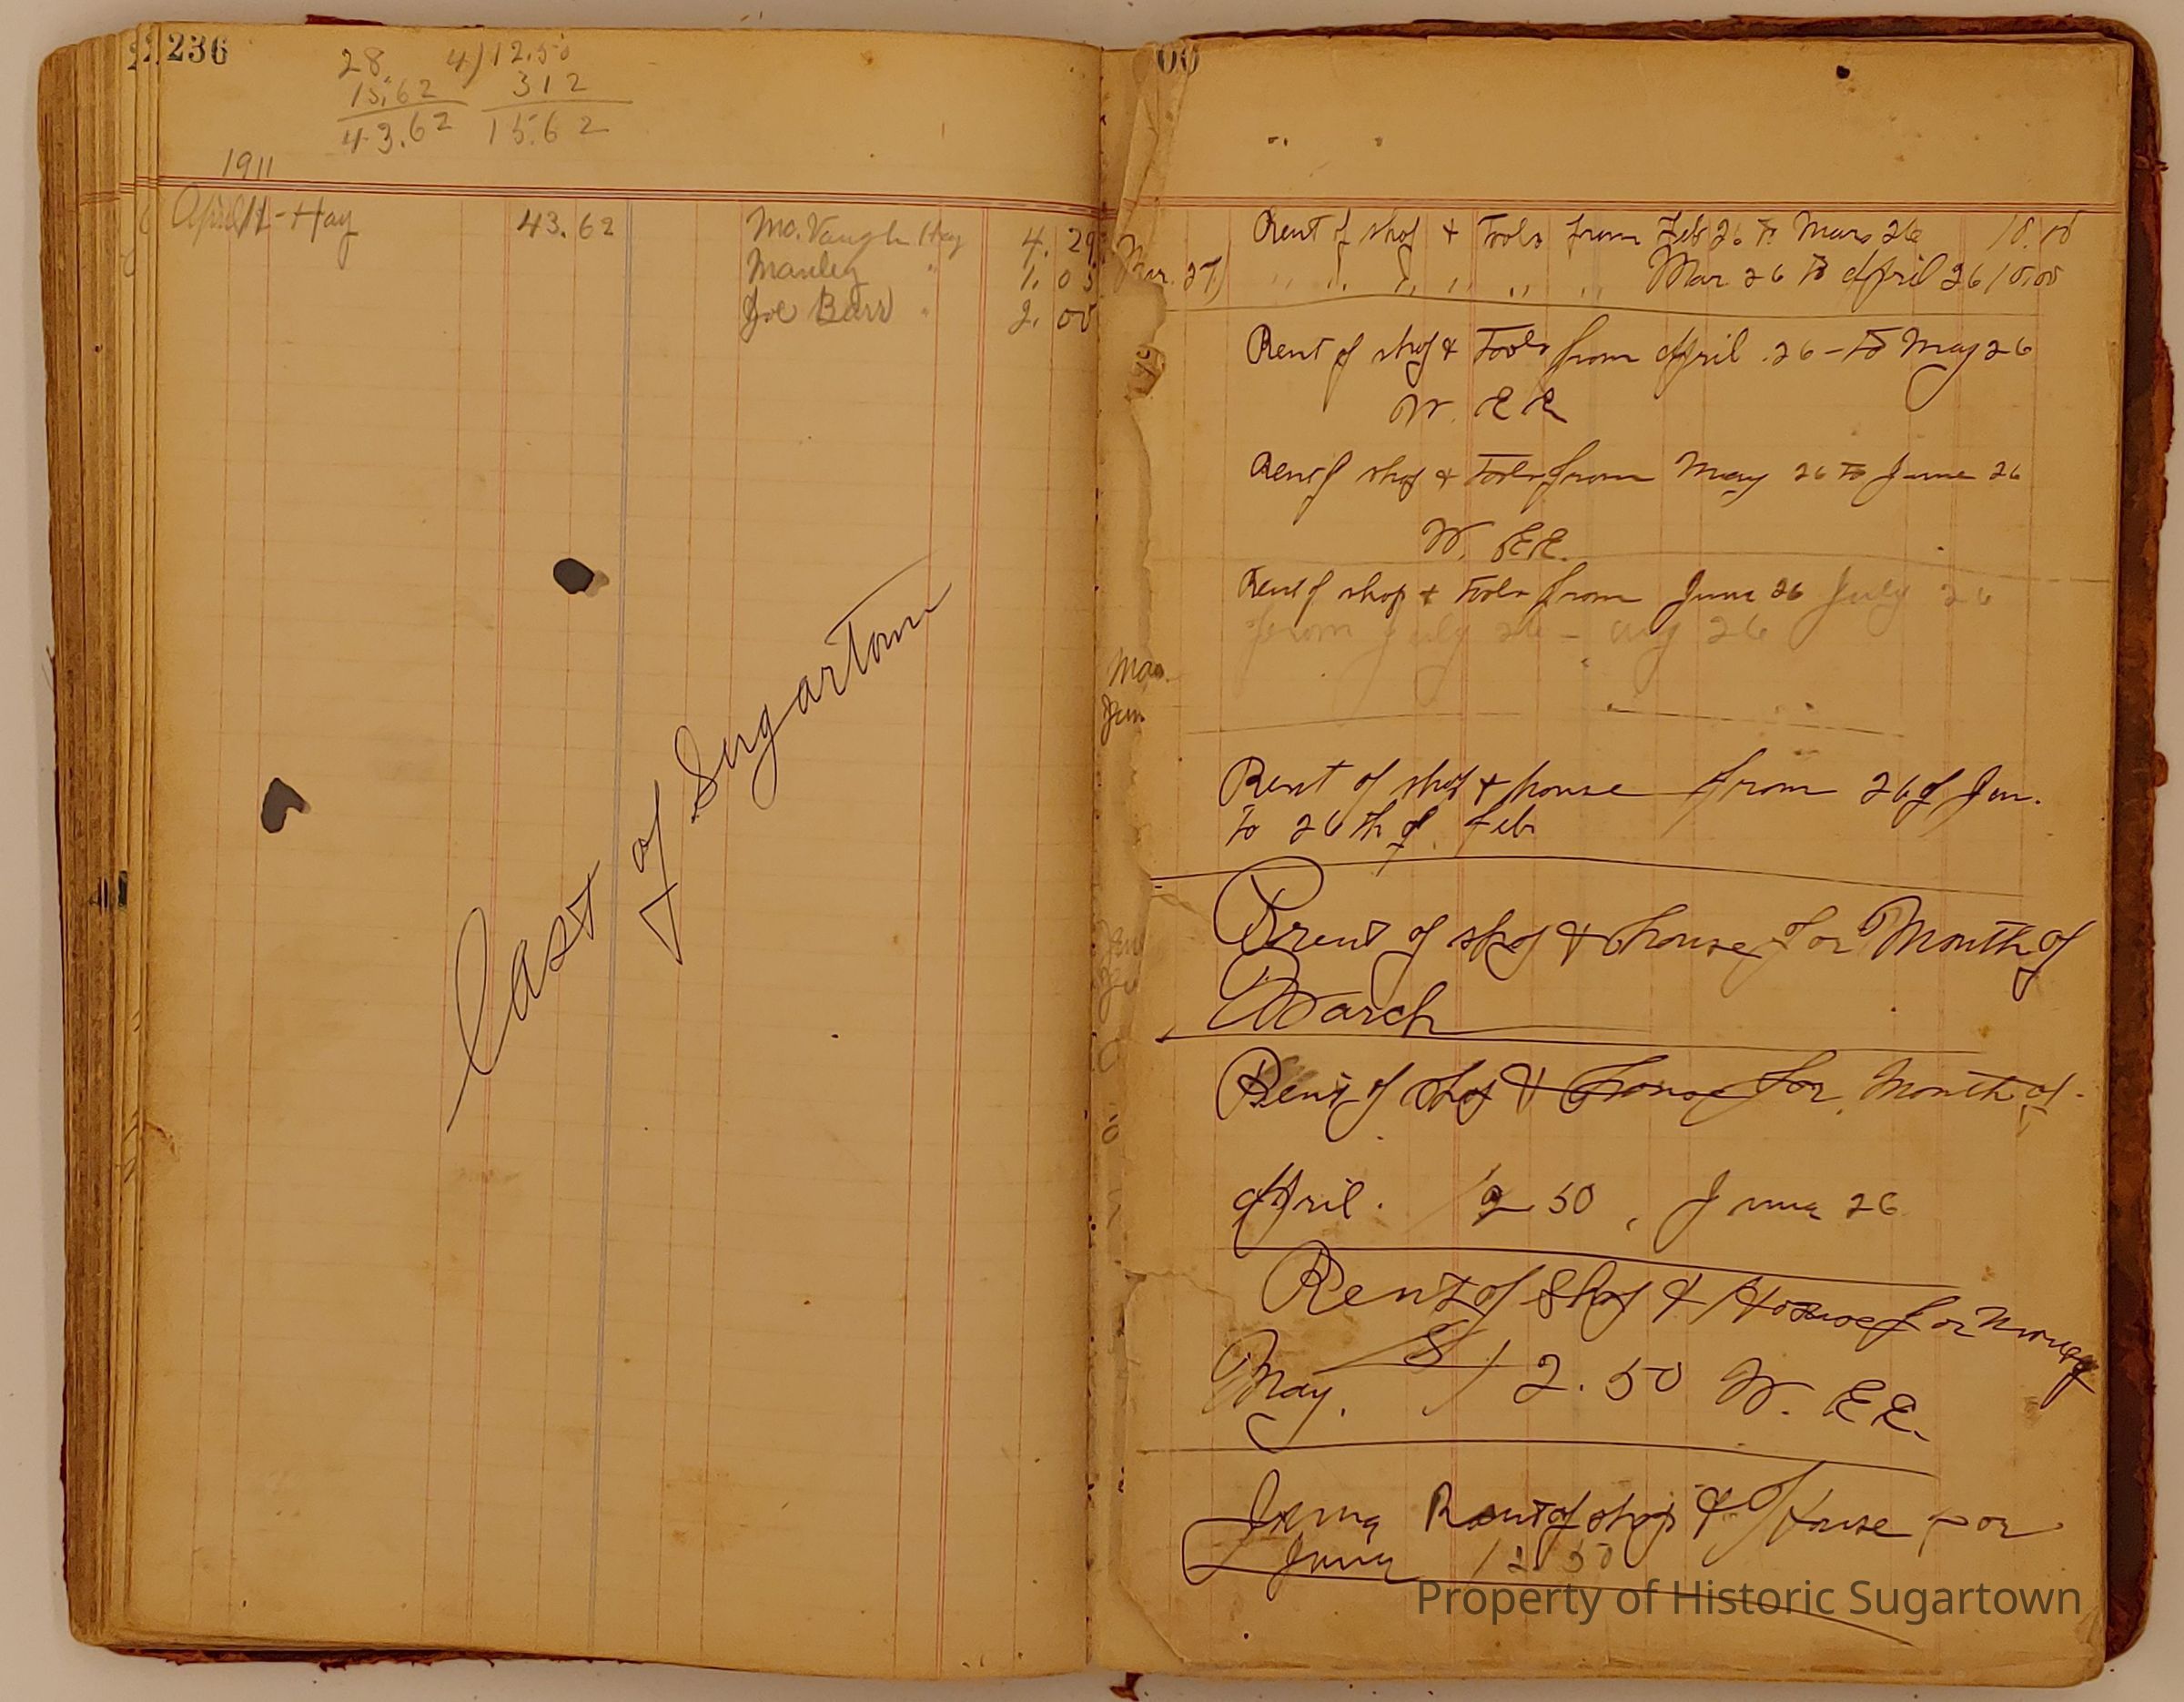 236
28 4)12.50
15.62 312
43.62 15.62
1911
April - Hay 43.62 Mo. Vaugh Hay 4.29
Manley " 1.05
Joe Barr " 2.00
East of Sugartown
00
Rent of shop & Tools from Feb 26 to Mars 26 10.00
Mar. 27) " " " " " " Mar. 26 to April 26 10.00
Rent of shop & Tools from April 26 - to May 26
W. E E
Rent of shop & Tools from May 26 to June 26
W. E E.
Rent of shop & Tools from June 26 July 26
from July 26 - aug 26
Mar.
Jun
Rent of shop & house from 26 of Jan.
to 26 th of Feb
Rent of shop & house for Month of
March
Rent of shop & house for Month of
April. 12 50, June 26
Rent of Shop & House for
May. $12.50 W. E E.
Rent of shop & House for
June 12 50
Property of Historic Sugartown